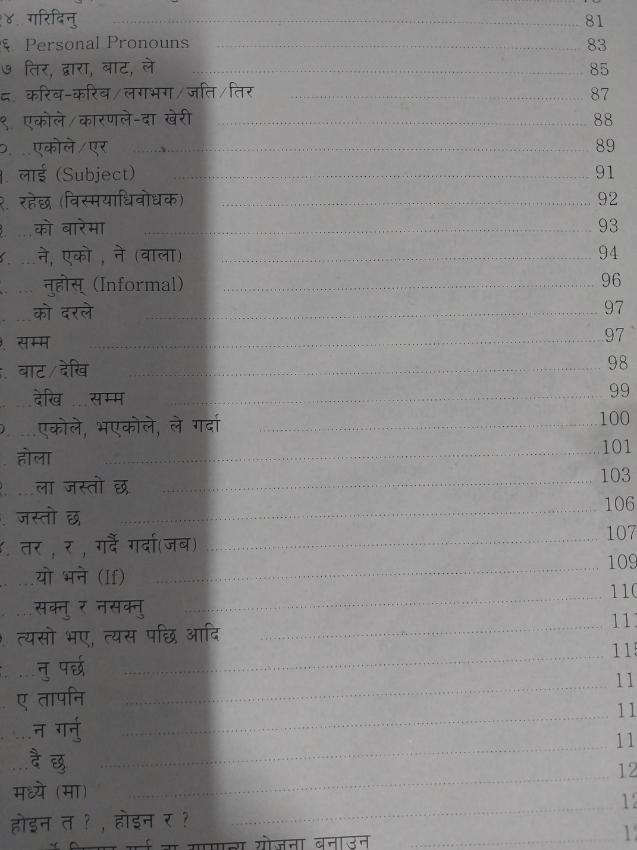 २४. गरिदिनु 81
६. Personal Pronouns 83
७ तिर, द्वारा, बाट, ले 85
८. करिब-करिब/लगभग/जति/तिर 87
९. एकोले/कारणले-दा खेरी 88
०. ...एकोले/एर 89
१. लाई (Subject) 91
२. रहेछ (विस्मयाधिवोधक) 92
३. ...को बारेमा 93
४. ...ने, एको , ने (वाला) 94
... नुहोस् (Informal) 96
...को दरले 97
७. सम्म 97
८. बाट/देखि 98
...देखि ...सम्म 99
०. ...एकोले, भएकोले, ले गर्दा 100
होला 101
२. ...ला जस्तो छ 103
३. जस्तो छ 106
४. तर , र , गर्दै गर्दा(जब) 107
...यो भने (If) 109
...सक्नु र नसक्नु 110
७ त्यसो भए, त्यस पछि आदि 111
...नु पर्छ 115
ए तापनि 11
...न गर्नु 11
...दै छु 11
मध्ये (मा) 12
होइन त ? , होइन र ? 12
योजना बनाउन 1